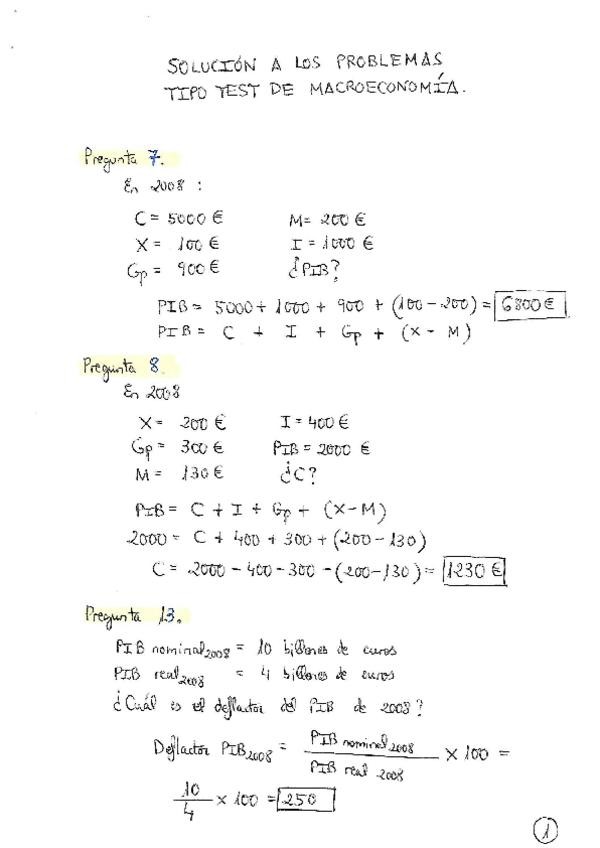 SOLUCIÓN A LOS PROBLEMAS
TIPO TEST DE MACROECONOMÍA.
Pregunta 7.
En 2008 :
C = 5000 € M = 200 €
X = 100 € I = 1000 €
Gp = 900 € ¿PIB?
PIB = 5000 + 1000 + 900 + (100 - 200) = 6800 €
PIB = C + I + Gp + (X - M)
Pregunta 8.
En 2008
X = 200 € I = 400 €
Gp = 300 € PIB = 2000 €
M = 130 € ¿C?
PIB = C + I + Gp + (X - M)
2000 = C + 400 + 300 + (200 - 130)
C = 2000 - 400 - 300 - (200 - 130) = 1230 €
Pregunta 13.
PIB nominal 2008 = 10 billones de euros
PIB real 2008 = 4 billones de euros
¿Cuál es el deflactor del PIB de 2008?
Deflactor PIB 2008 = PIB nominal 2008 / PIB real 2008 × 100 =
10 / 4 × 100 = 250
1